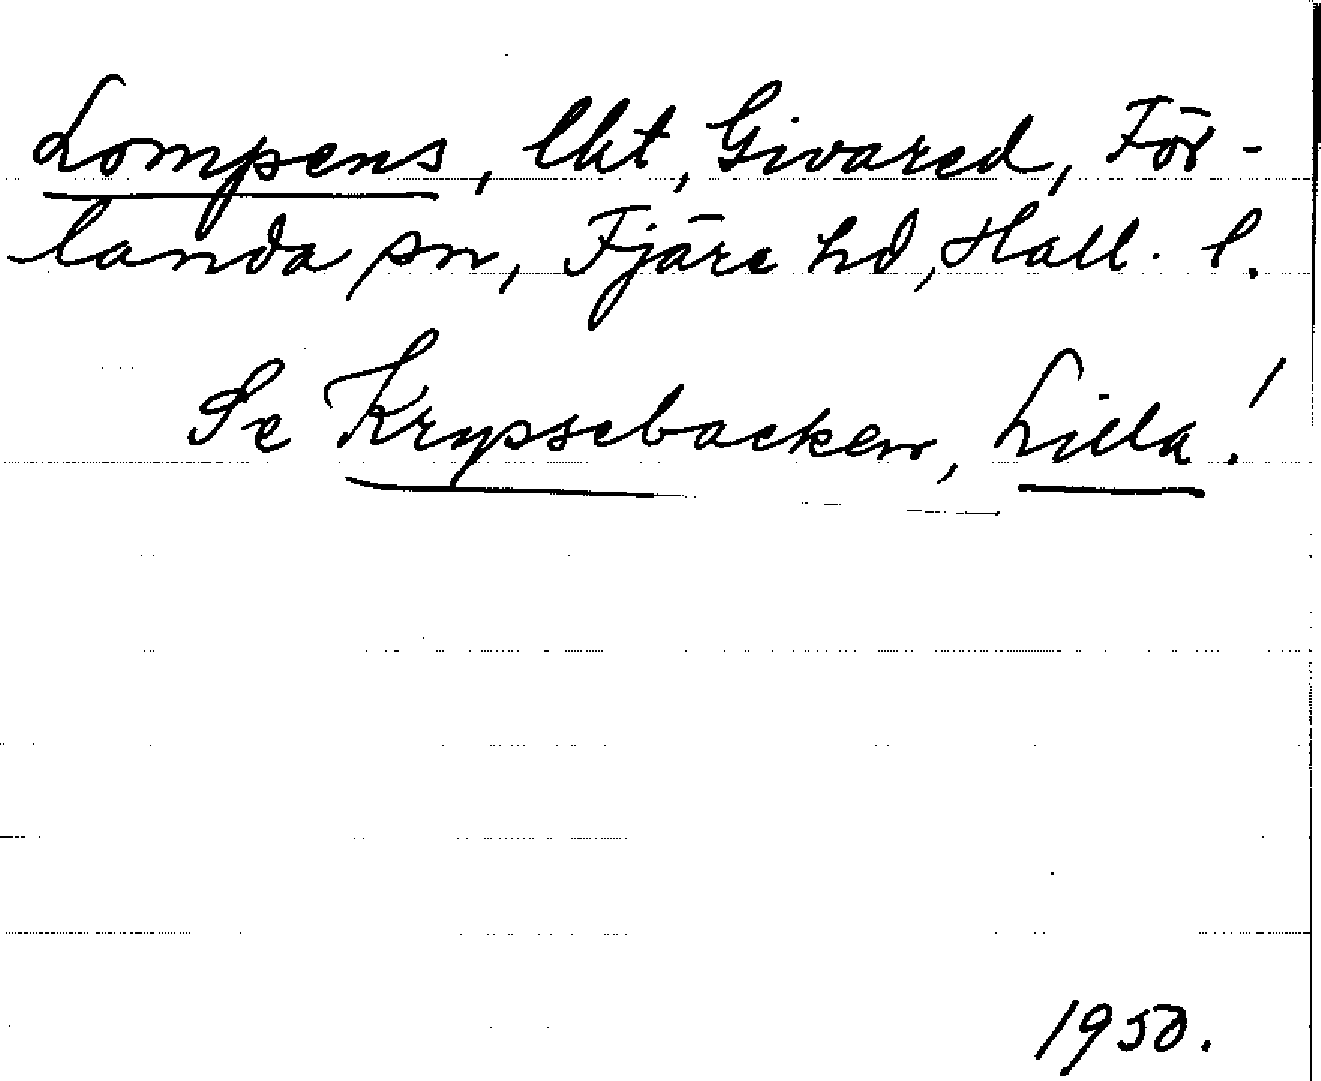 Lompens, lht, Givared, För-
landa sn, Fjäre hd, Hall. l.
Se Kryssebacken, Lilla!
1950.